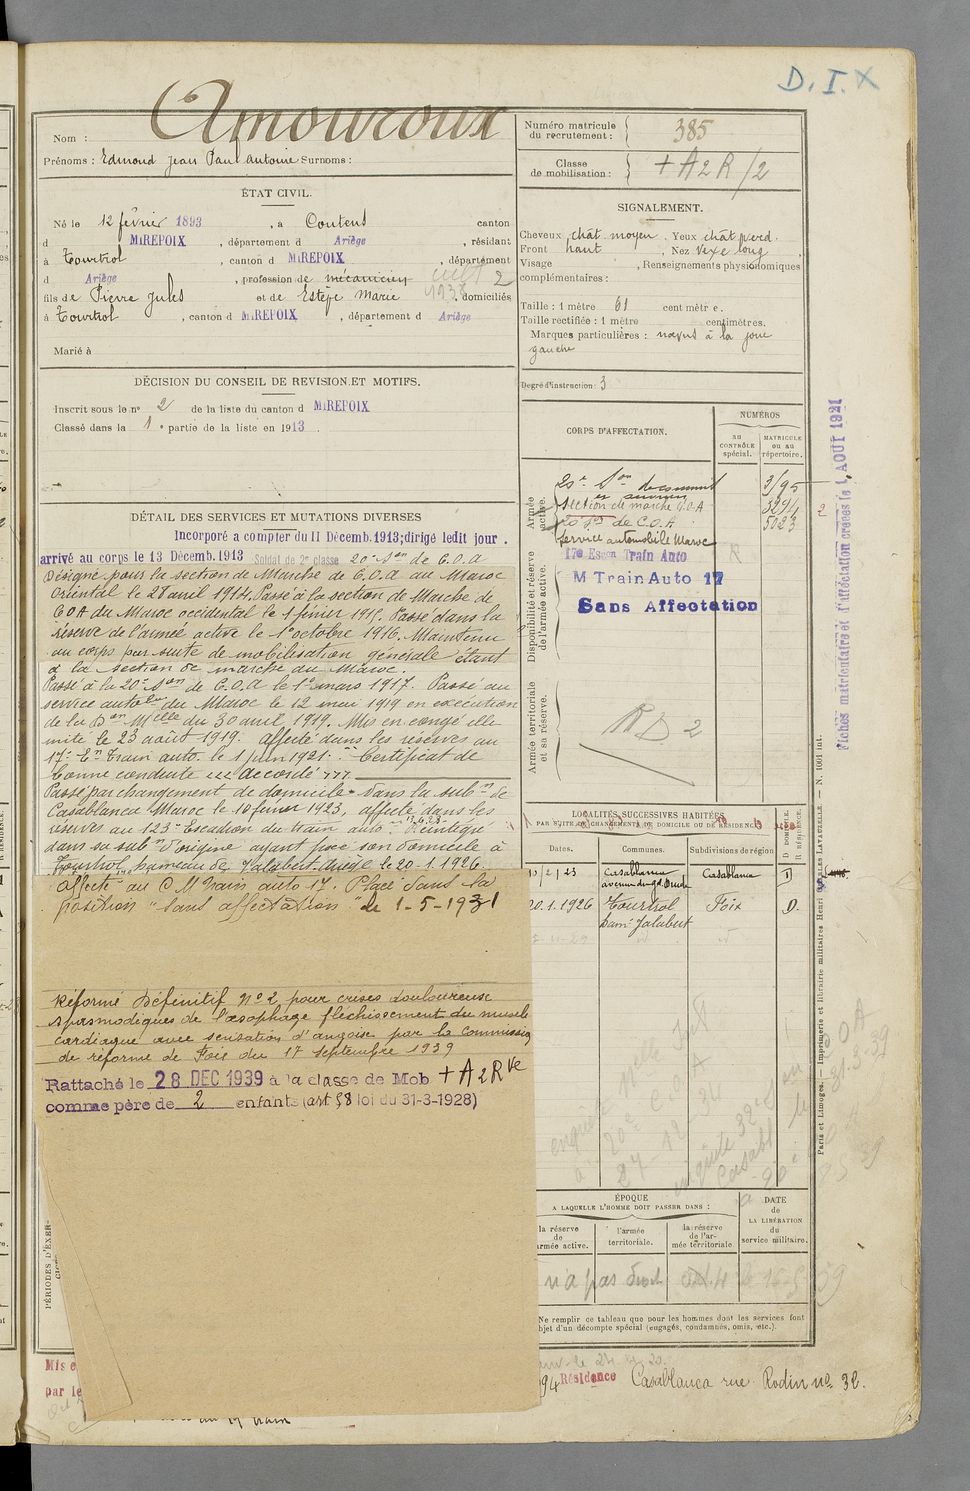 D. I. X
Amouroux
Nom :
Prénoms : Edmond Jean Paul Antoine Surnoms :
ÉTAT CIVIL.
Né le 12 février 1893, à Coutens canton
d MIREPOIX, département d Ariège, résidant
à Tourtrol, canton d MIREPOIX, département
d Ariège, profession de mécanicien
fils de Pierre Jules et de Estèpe Marie, domiciliés
à Tourtrol, canton d MIREPOIX, département d Ariège
Marié à
DÉCISION DU CONSEIL DE REVISION ET MOTIFS.
Inscrit sous le no 2 de la liste du canton d MIREPOIX
Classé dans la 1e partie de la liste en 1913.
DÉTAIL DES SERVICES ET MUTATIONS DIVERSES
Incorporé a compter du 11 Décemb. 1913; dirigé ledit jour.
arrivé au corps le 13 Décemb. 1913 Soldat de 2e classe 20e Son de C.O.A
Désigné pour la section de Marche de C.O.A au Maroc
Oriental le 28 avril 1914. Passé à la section de Marche de
C.O.A du Maroc occidental le 1 février 1915. Passé dans la
réserve de l'armée active le 1er octobre 1916. Maintenu
au corps par suite de mobilisation générale étant
à la section de marche du Maroc.
Passé à la 20e Son de C.O.A le 1er mars 1917. Passé au
service autobile du Maroc le 12 mai 1919 en exécution
de la Don Melle du 30 avril 1919. Mis en congé illi
mité le 23 août 1919. affecté dans les réserves au
17e En Train auto. le 1 juin 1921. Certificat de
bonne conduite accordé
Passé par changement de domicile dans la subon de
Casablanca Maroc le 10 février 1923, affecté dans les
réserves au 123e Escadron du train auto. Réintégré
dans sa subon d'origine ayant fixé son domicile à
Tourtrol, hameau de Jalabert Ariège le 20-1-1926.
affecté au C M Train auto 17. Placé dans la
position "sans affectation" le 1-5-1931
Réformé Définitif No 2 pour crises douloureuse
spasmodiques de l'œsophage fléchissement du muscle
cardiaque avec sensation d'angoise par la Commission
de réforme de Foix du 17 septembre 1939
Rattaché le 28 DEC 1939 à la classe de Mob + A2Rve
comme père de 2 enfants (art 58 loi du 31-3-1928)
PÉRIODES D'EXER-
Mis e
par le
Numéro matricule du recrutement : 385
Classe de mobilisation : + A2R/2
SIGNALEMENT.
Cheveux chât moyen. Yeux chât verd.
Front haut, Nez vexe long
Visage, Renseignements physionomiques
complémentaires :
Taille : 1 mètre 61 centimètre.
Taille rectifiée : 1 mètre centimètres.
Marques particulières : nœvus à la joue
gauche
Degré d'instruction : 3
CORPS D'AFFECTATION.
NUMÉROS
AU CONTRÔLE spécial.
MATRICULE ou au répertoire.
Armée active.
20e Son de commis
et ouvriers
3195
Section de marche C.O.A
3294
20e Son de C.O.A
5023
Service automobile Maroc
Disponibilité et réserve de l'armée active.
17e Escon Train Auto
M Train Auto 17
Sans Affectation
Armée territoriale et sa réserve.
RD 2
LOCALITÉS SUCCESSIVES HABITÉES
PAR SUITE DE CHANGEMENTS DE DOMICILE OU DE RÉSIDENCE.
Dates.
Communes.
Subdivisions de région
D DOMICILE.
R RÉSIDENCE.
10/2/23 Casablanca Casablanca D
avenue du gd. Dude
20.1.1926 Tourtrol Foix D.
ham. Jalabert
ÉPOQUE
A LAQUELLE L'HOMME DOIT PASSER DANS :
DATE
de
LA LIBÉRATION
du
service militaire.
la réserve de l'armée active.
l'armée territoriale.
la réserve de l'armée territoriale
n'a pas droit
Ne remplir ce tableau que pour les hommes dont les services font
objet d'un décompte spécial (engagés, condamnés, omis, etc.).
Résidence Casablanca rue Rodin no 32.
Fiches matriculaire et d'affectation créées le 1 AOUT 1921
Paris et Limoges. — Imprimerie et librairie militaires Henri CHARLES-LAVAUZELLE — N. 1001 int.